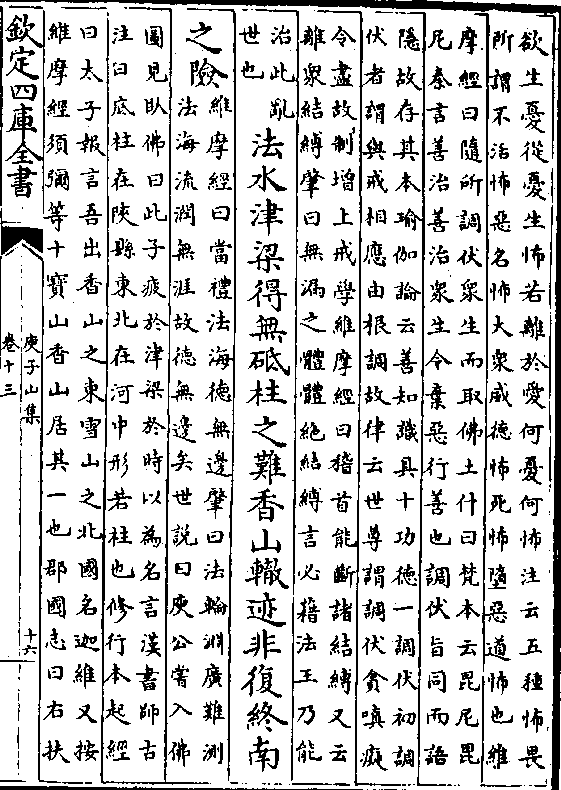 欲生憂從憂生怖若離於愛何憂何怖注云五種怖畏
所謂不活怖惡名怖大衆威德怖死怖墮惡道怖也維
摩經曰隨所調伏衆生而取佛土什曰梵本云毘尼毘
尼秦言善治善治衆生令棄惡行善也調伏旨同而語
隱故存其本瑜伽論云善知識具十功德一調伏初調
伏者謂與戒相應由根調故律云世尊謂調伏貪嗔癡
令盡故制增上戒學維摩經曰稽首能斷諸結縛又云
離衆結縛肇曰無漏之體體絶結縛言必藉法王乃能
治此亂
世也
法水津梁得無砥柱之難香山轍迹非復終南
之險
維摩經曰當禮法海德無邊肇曰法輪淵廣難測
法海流潤無涯故德無邊矣世説曰庾公嘗入佛
圖見臥佛曰此子疲於津梁於時以為名言漢書師古
注曰底柱在陜縣東北在河中形若柱也修行本起經
曰太子報言吾出香山之東雪山之北國名迦維又按
維摩經須彌等十寶山香山居其一也郡國志曰右扶
欽定四庫全書
庾子山集
卷十三
十六